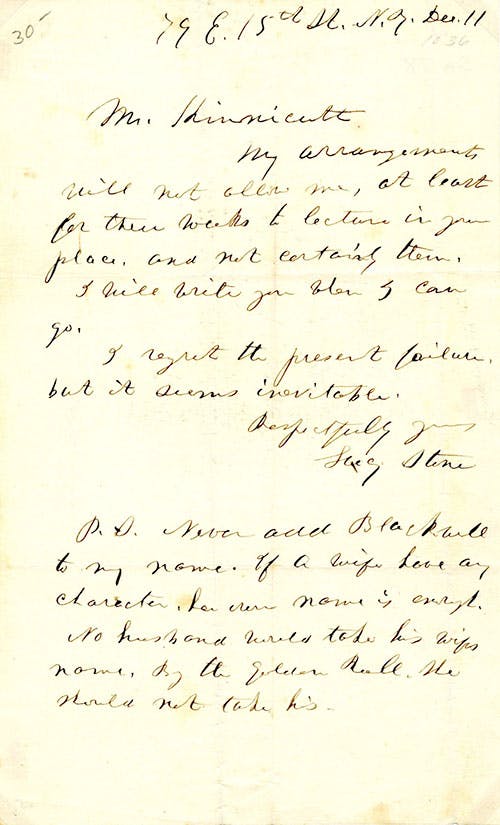 30-
79 E. 15th St. N.Y. Dec. 11
Mr. Kinnicutt
My arrangements
will not allow me, at least
for three weeks to lecture in your
place, and not certainly then.
I will write you when I can
go.
I regret the present failure,
but it seems inevitable.
Respectfully yours
Lucy Stone
P.S. Never add Blackwell
to my name. If a wife have any
character, her own name is enough.
No husband would take his wifes
name. By the golden Rull, she
should not take his.